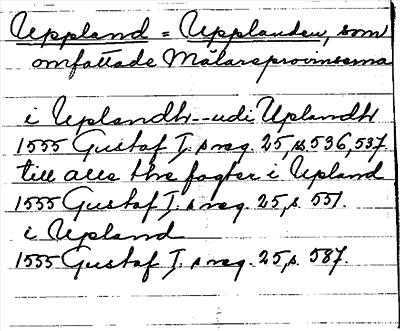 Uppland = Upplanden, som
omfattade Mälarprovinserna
i Uplandh--udi Uplandh
1555 Gustaf I:s reg. 25, s. 536, 537.
till alle the fogter i Upland
1555 Gustaf I:s reg. 25, s. 551.
i Upland
1555 Gustaf I:s reg. 25, s. 587.